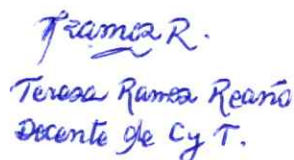 Ramos R.
Teresa Ramos Reaño
Docente de C y T.